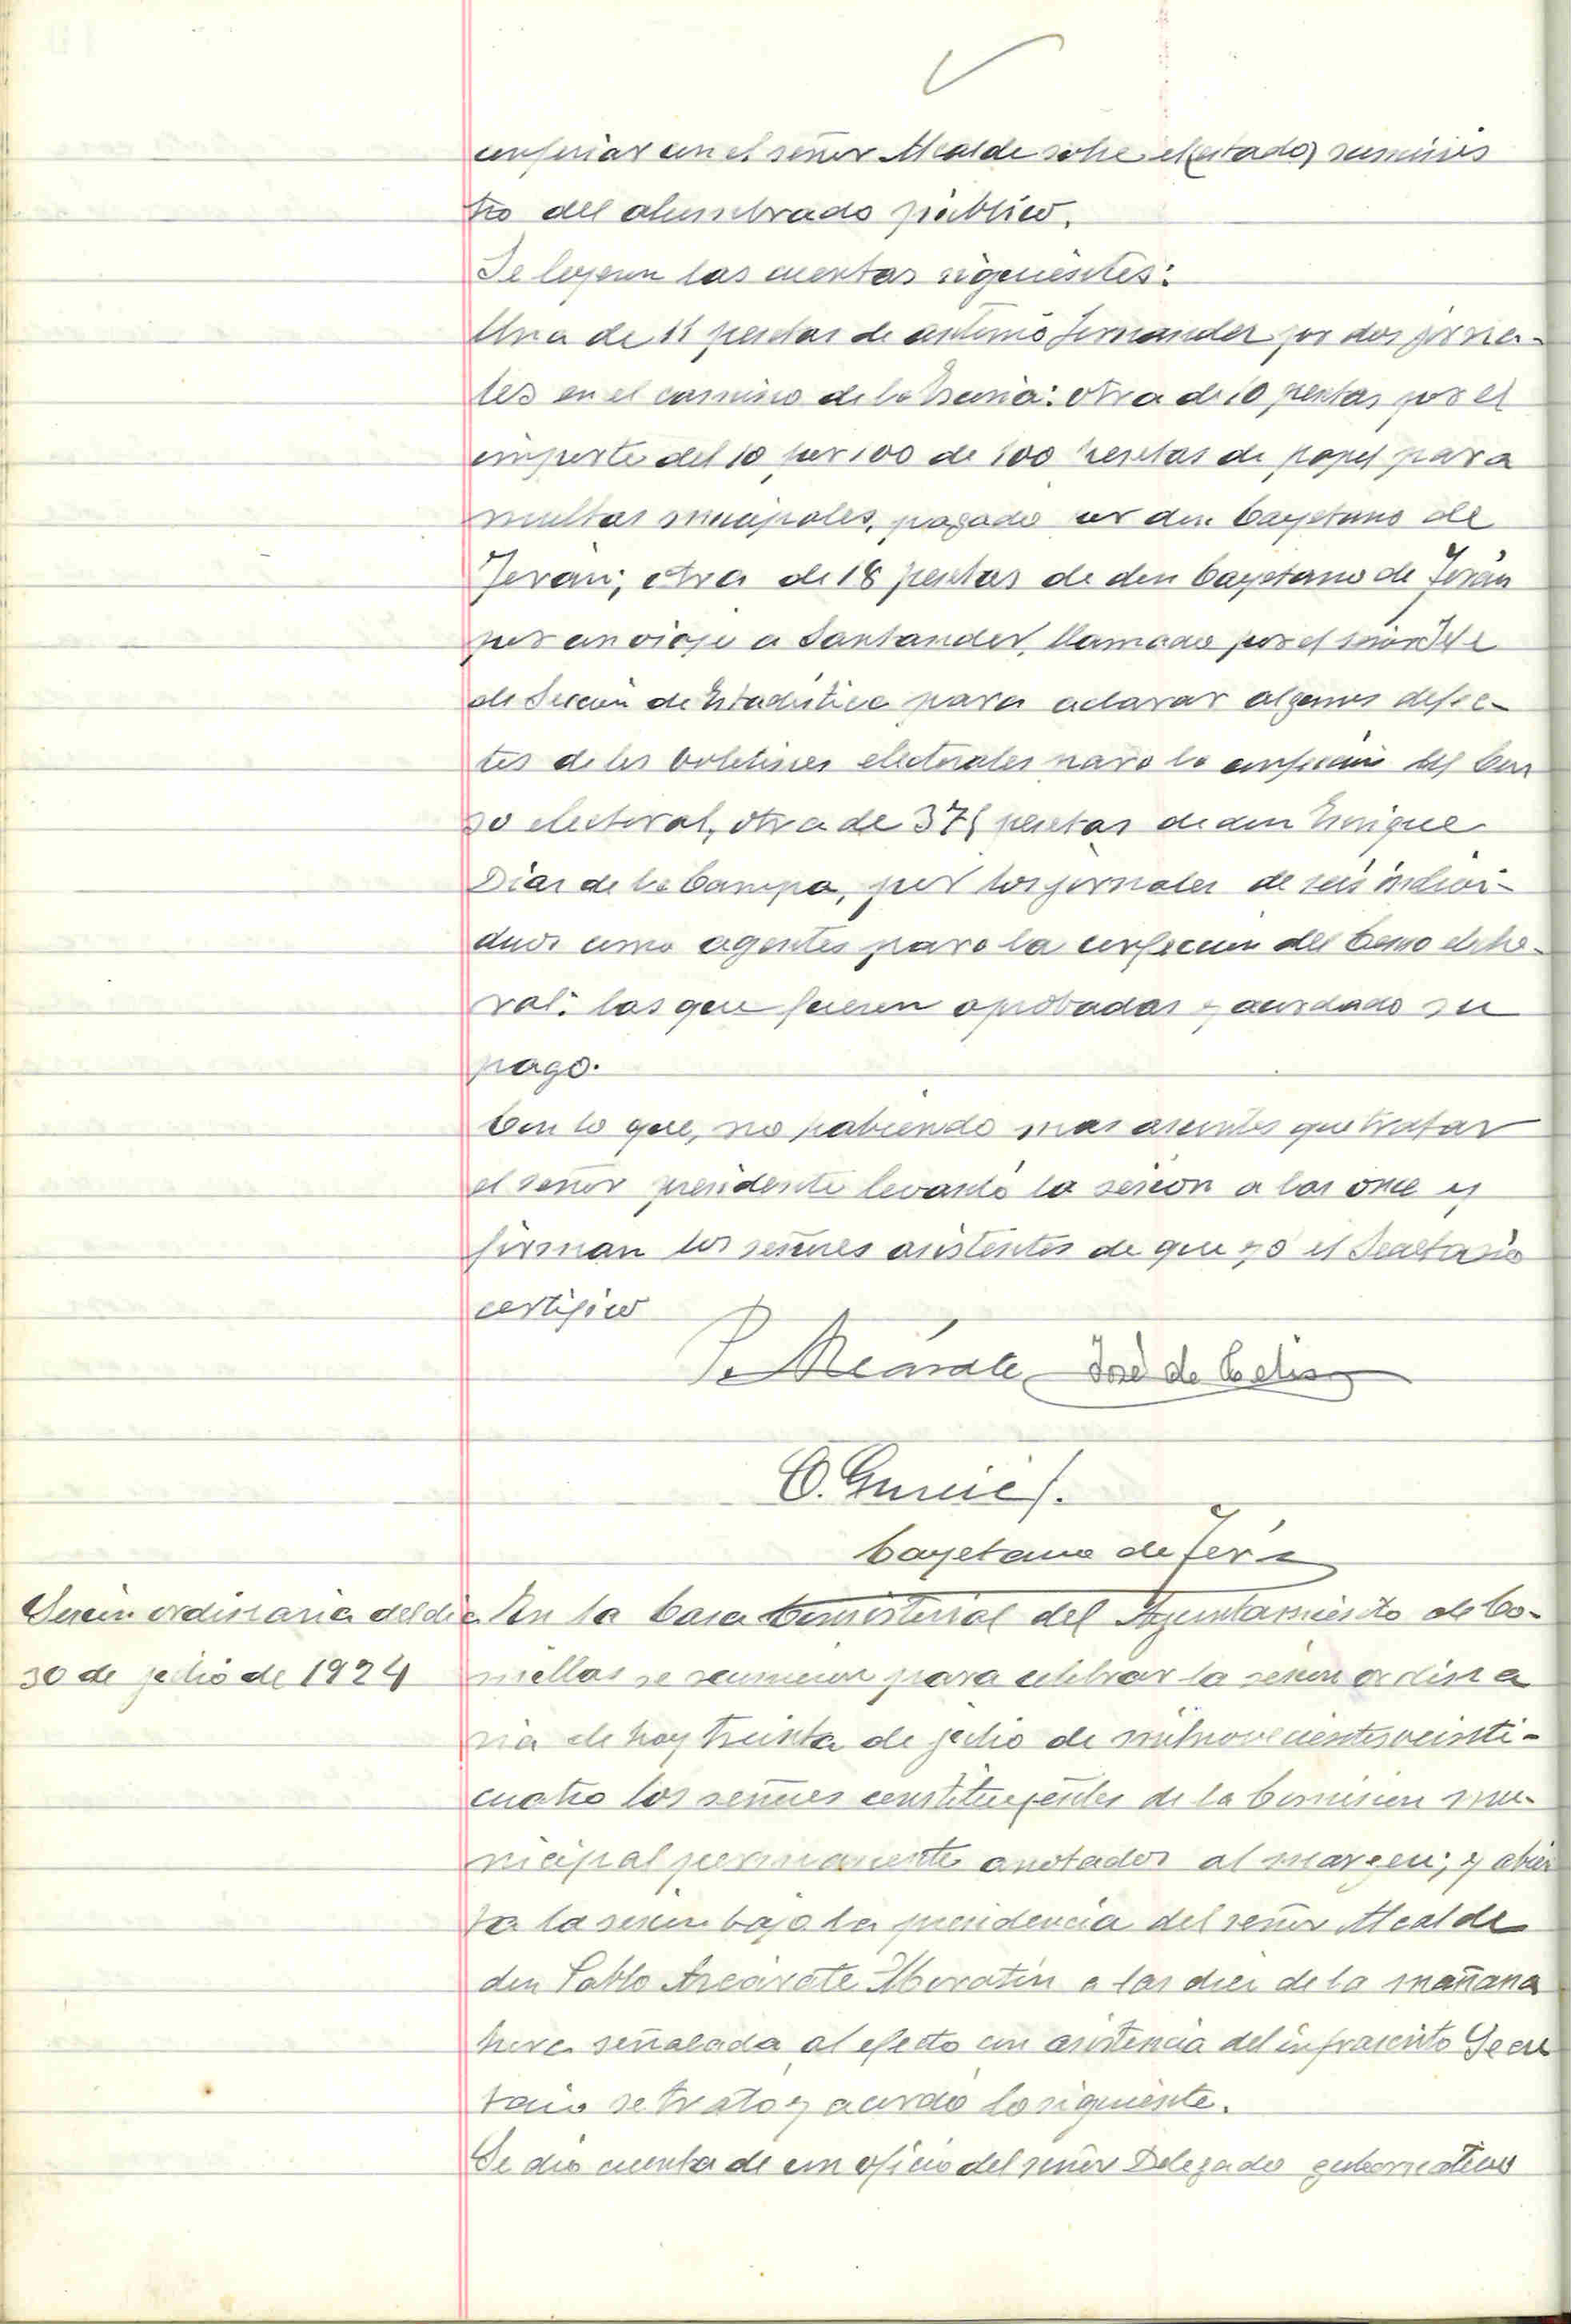 conferiar con el señor Alcalde sobre el (estado) suminis
tro del alumbrado público.
Se leyeron las cuentas siguientes:
Una de 11 pesetas de antonio Fernandez por dos jorna-
les en el camino de la : otra de 10 pesetas por el
importe del 10 por 100 de 100 pesetas de papel para
multas municipales, pagado por don Cayetano de
Terán; otra de 18 pesetas de don Cayetano de Terán
por un viaje a Santander, llamado por el señor Jefe
de Seccion de Estadistica para aclarar algunos defec-
tos de los boletines electorales para la confeccion del Cen
so electoral, otra de 375 pesetas de don Enrique
Diaz de la Campa, por los jornales de seis indivi-
duos como agentes para la confeccion del Censo electo-
ral: las que fueron aprobadas y acordado su
pago.
Con lo que, no habiendo mas asuntos que tratar
el señor presidente levantó la sesion a las once y
firman los señores asistentes de que yo el Secretario
certifico
P. Azcárate José de Celis
C. G
Cayetano de Terán
Sesion ordinaria del dia
30 de julio de 1924
En la Casa Consistorial del Ayuntamiento de Co-
millas se reunieron para celebrar la sesion ordina
ria de hoy treinta de julio de milnovecientosveinti-
cuatro los señores constituyentes de la Comision mu-
nicipal permanente anotados al margen; y abier
ta la sesion bajo la presidencia del señor Alcalde
don Pablo Azcárate Moratin a las diez de la mañana
hora señalada al efecto con asistencia del infrascrito Secre
tario se trató y acordó lo siguiente.
Se dio cuenta de un oficio del señor Delegado gubernativo